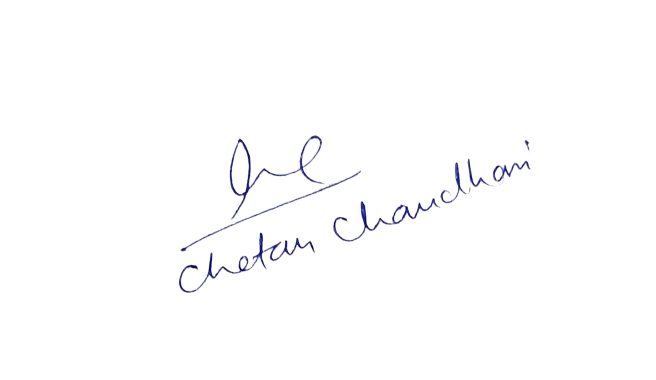 Chetan Chaudhari